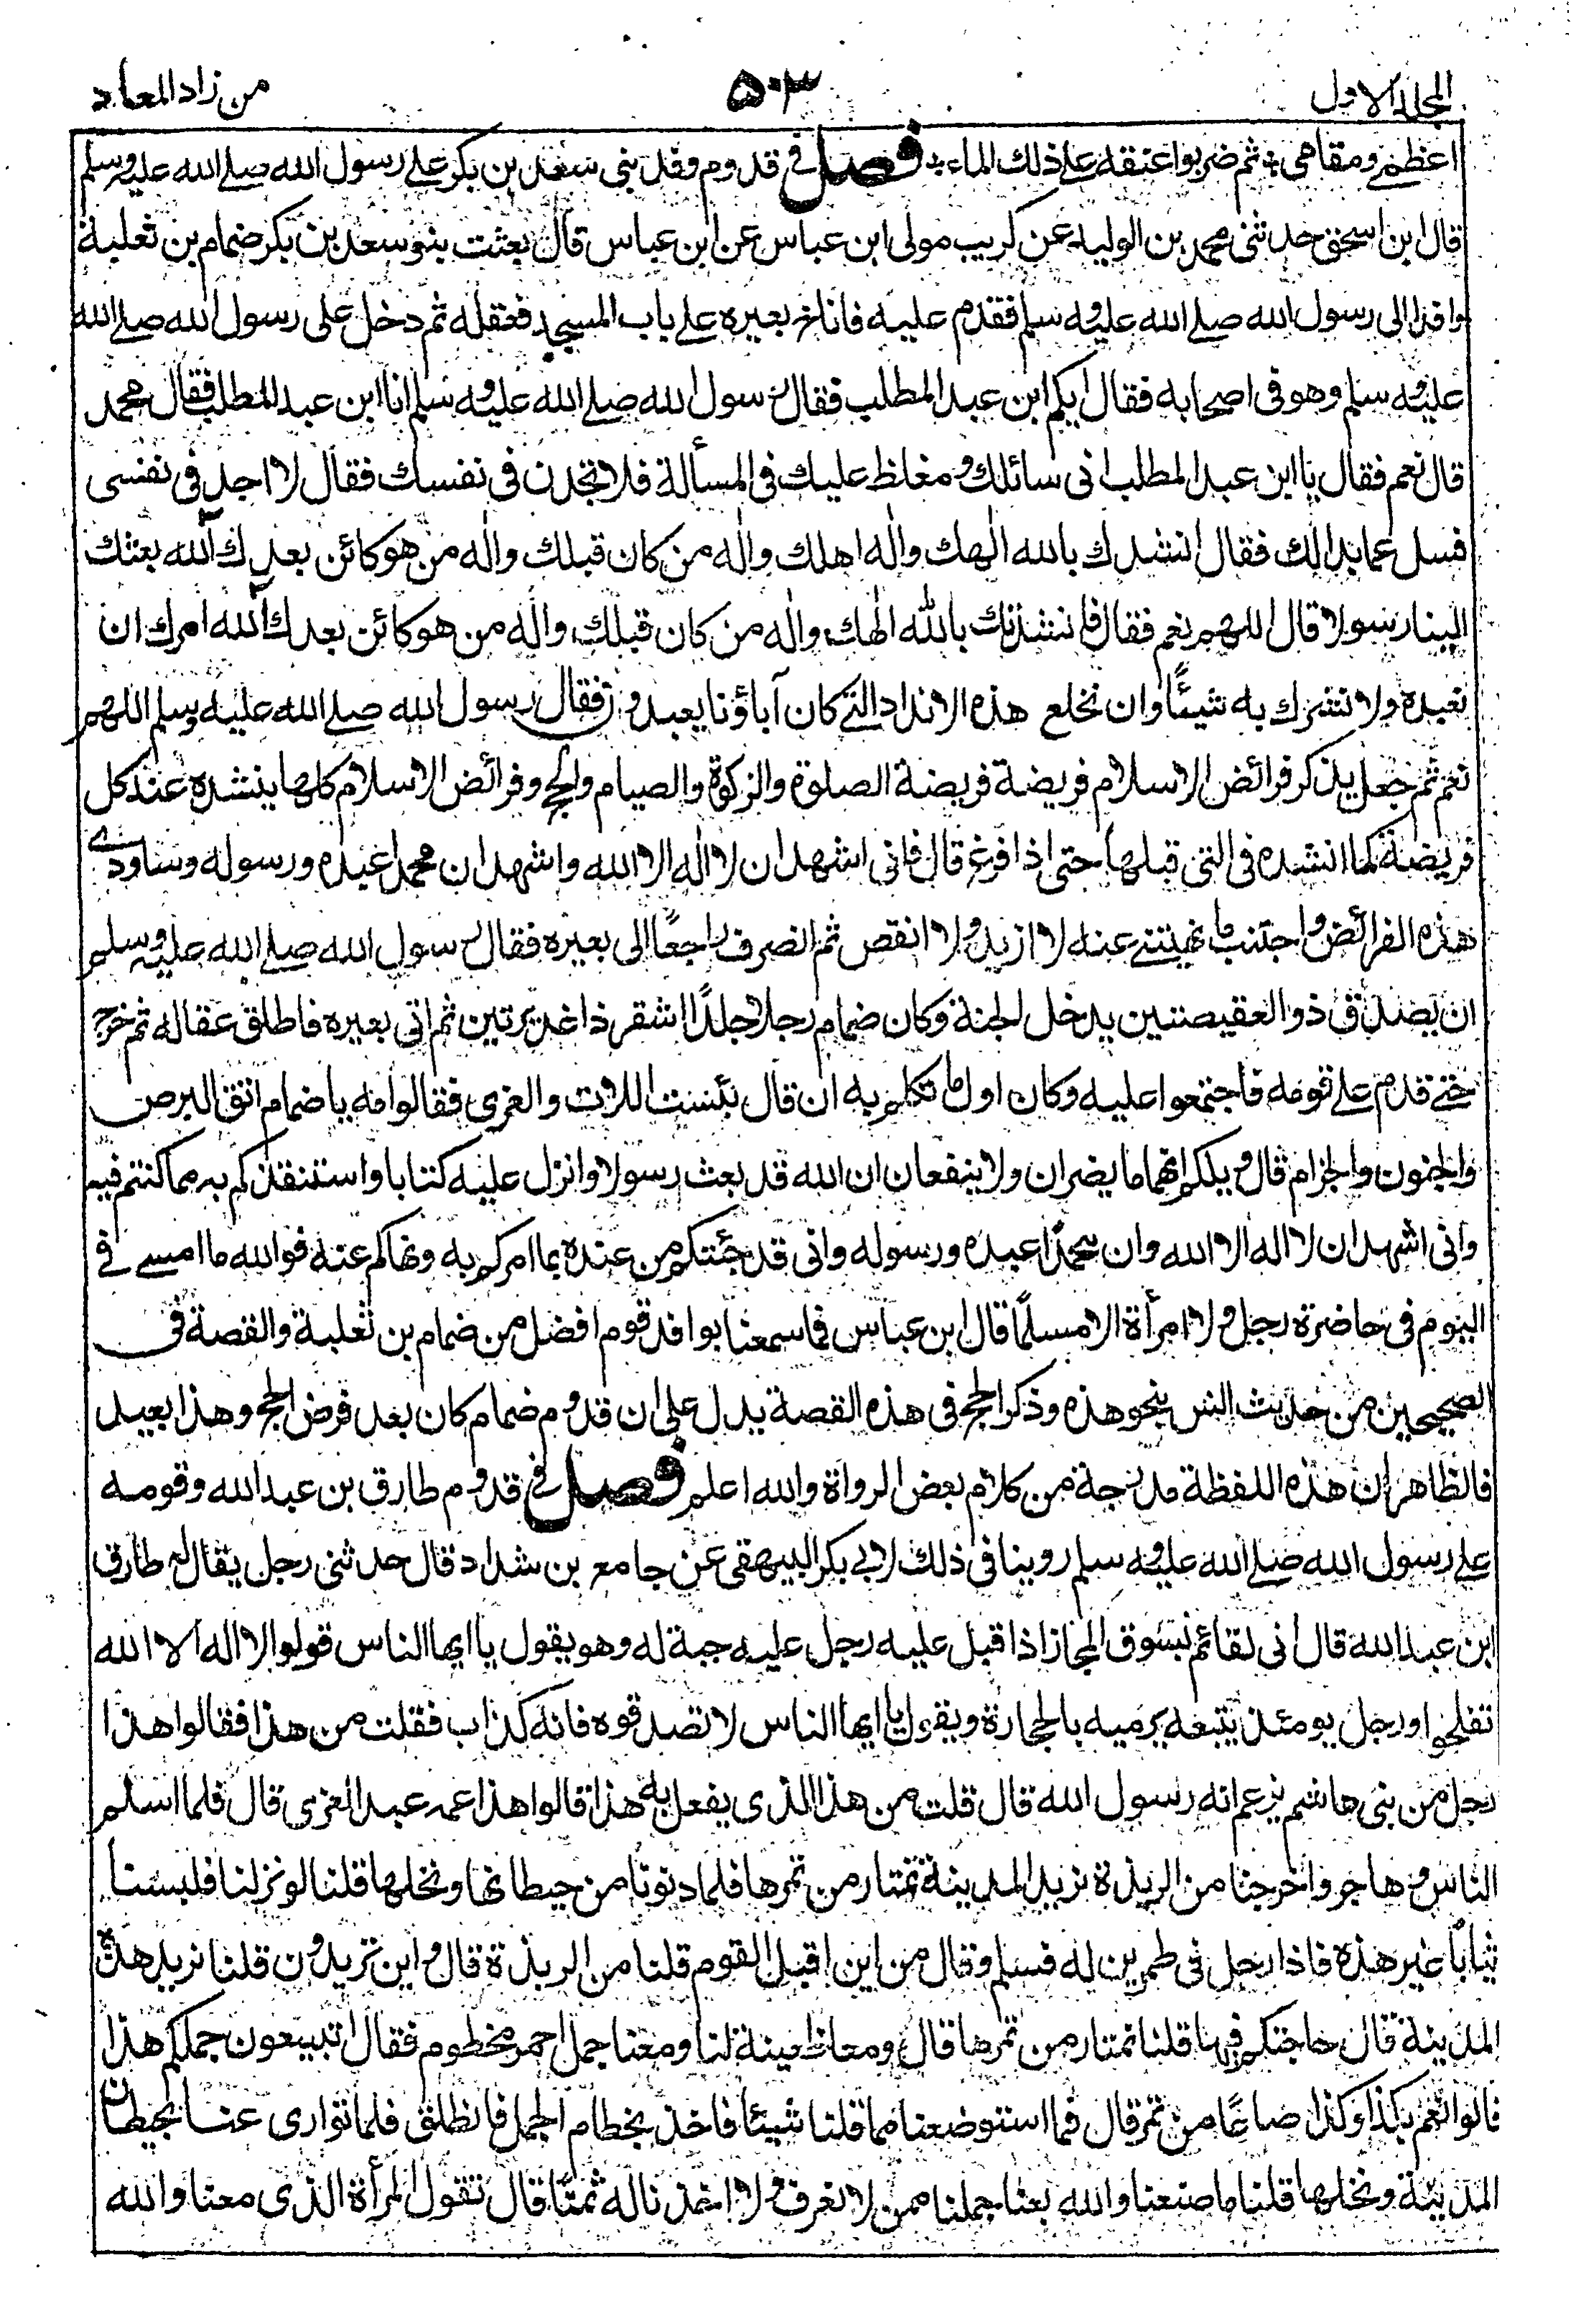 المجلد الاول
٥٠٣
من زاد المعاد
اعظمي ومقامي ثم ضربوا عنقه على ذلك الماء فصل في قدوم وفد بني سعد بن بكر على رسول الله صلى الله عليه وسلم
قال ابن اسحق حدثني محمد بن الوليد عن كريب مولى ابن عباس عن ابن عباس قال بعثت بنو سعد بن بكر ضمام بن ثعلبة
وافدا الى رسول الله صلى الله عليه وسلم فقدم عليه فاناخ بعيره على باب المسجد فعقله ثم دخل على رسول الله صلى الله
عليه وسلم وهو في اصحابه فقال ايكم ابن عبد المطلب فقال رسول الله صلى الله عليه وسلم انا ابن عبد المطلب فقال محمد
قال نعم فقال يا ابن عبد المطلب اني سائلك ومغلظ عليك في المسألة فلا تجدن في نفسك فقال لا اجد في نفسي
فسل عما بدا لك فقال انشدك بالله الٰهك واله اهلك واله من كان قبلك واله من هو كائن بعدك آلله بعثك
الينا رسولا قال اللهم نعم فقال فانشدتك بالله الٰهك واله من كان قبلك واله من هو كائن بعدك آلله امرك ان
نعبده ولا نشرك به شيئًا وان نخلع هذه الانداد التي كان آباؤنا يعبدون فقال رسول الله صلى الله عليه وسلم اللهم
نعم ثم جعل يذكر فرائض الاسلام فريضة فريضة الصلوة والزكوة والصيام والحج وفرائض الاسلام كلها ينشده عند كل
فريضة كما انشده في التي قبلها حتى اذا فرغ قال فاني اشهد ان لا اله الا الله واشهد ان محمدا عبده ورسوله وساودي
هذه الفرائض واجتنب ما نهيتني عنه لا ازيد ولا انقص ثم انصرف راجعًا الى بعيره فقال رسول الله صلى الله عليه وسلم
ان يصدق ذو العقيصتين يدخل الجنة وكان ضمام رجلا جلدًا اشقر ذا غديرتين ثم اتى بعيره فاطلق عقاله ثم خرج
حتى قدم على قومه فاجتمعوا عليه وكان اول ما تكلم به ان قال بئست اللات والعزى فقالوا مه يا ضمام اتق البرص
والجنون والجذام قال ويلكم انهما ما يضران ولا ينفعان ان الله قد بعث رسولا وانزل عليه كتابا واستنقذكم به مما كنتم فيه
واني اشهد ان لا اله الا الله وان محمدًا عبده ورسوله واني قد جئتكم من عنده بما امركم به ونهاكم عنه فوالله ما امسى في
اليوم في حاضرته رجل ولا امرأة الا مسلمًا قال ابن عباس فما سمعنا بوافد قوم افضل من ضمام بن ثعلبة والقصة في
الصحيحين من حديث انس بنحو هذه وذكر الحج في هذه القصة يدل على ان قدوم ضمام كان بعد فرض الحج وهذا بعيد
فالظاهر ان هذه اللفظة مدرجة من كلام بعض الرواة والله اعلم فصل في قدوم طارق بن عبد الله وقومه
على رسول الله صلى الله عليه وسلم روينا في ذلك لابي بكر البيهقي عن جامع بن شداد قال حدثني رجل يقال له طارق
ابن عبد الله قال اني لقائم بسوق المجاز اذ اقبل عليه رجل عليه جبة له وهو يقول يا ايها الناس قولوا لا اله الا الله
تفلحوا ورجل يومئذ يتبعه يرميه بالحجارة ويقول يا ايها الناس لا تصدقوه فانه كذاب فقلت من هذا فقالوا هذا
رجل من بني هاشم يزعم انه رسول الله قال قلت من هذا الذي يفعل به هذا قالوا هذا عمه عبد العزى قال فلما اسلم
الناس وهاجروا خرجنا من الربذة نريد المدينة نمتار من تمرها فلما دنونا من حيطانها ونخلها قلنا لو نزلنا فلبسنا
ثيابًا غير هذه فاذا رجل في طمرين له فسلم وقال من اين اقبل القوم قلنا من الربذة قال واين تريدون قلنا نريد هذه
المدينة قال ما حاجتكم فيها قلنا نمتار من تمرها قال ومعنا ظعينة لنا ومعنا جمل احمر مخطوم فقال اتبيعون جملكم هذا
قالوا نعم بكذا وكذا صاعًا من تمر قال فما استوضعنا مما قلنا شيئا فاخذ بخطام الجمل فانطلق فلما توارى عنا بحيطان
المدينة ونخلها قلنا ما صنعنا والله بعنا جملنا ممن لا نعرف ولا اخذنا له ثمنًا قال تقول المرأة الذي معنا والله